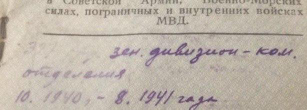 в Советской Армии, Военно-Морских
силах, пограничных и внутренних войсках
МВД.
зен. дивизион - ком.
отделения
10. 1940. - 8. 1941 года